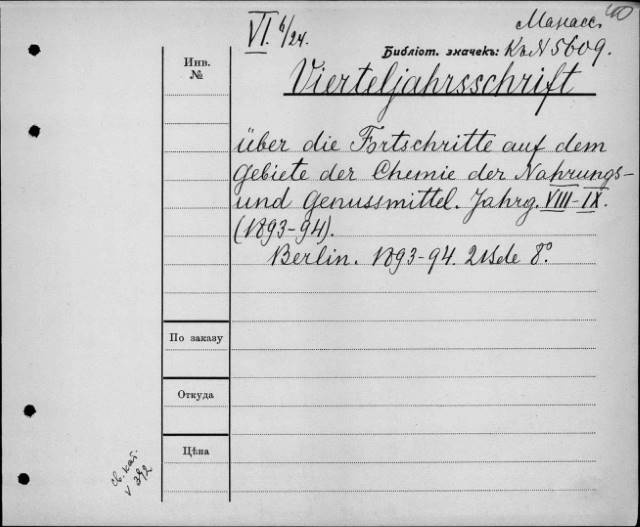 40
VI. 6/24.
Манасс.
Библіот. значекъ: К. N 5609.
Инв.
№
Vierteljahrsschrift
über die Fortschritte auf dem
Gebiete der Chemie der Nahrungs-
und Genussmittel. Jahrg. VIII-IX.
(1893-94).
Berlin. 1893-94. 2 Bde 8°.
По заказу
Откуда
Цѣна
св. кат.
V 392